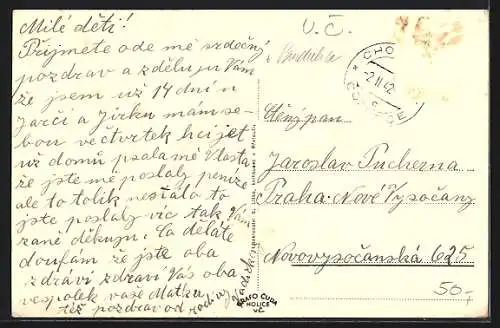 Milé děti!
Přijmete ode mě srdečný
pozdrav a zděluju Vám
že jsem už 14 dní u
Jarči a Jirku mám se-
bou ve čtvrtek hci jet
už domů psala mě Vlasta
že jste mě poslaly peníze
ale to tolik nestálo to
jste poslaly víc tak Vám
zané děkuju. Co děláte
doufám že jste oba
zdrávi zdraví Vás oba
vespolek vaše Matka
též pozdrav od rodiny
U.Č.
CHO
-2.II.42
Ctěný pan
Jaroslav Puchema
Praha Nové Vysočany
Novovysočanská 625
50,-
GRAFO ČUDA
HOLICE
V.Č.